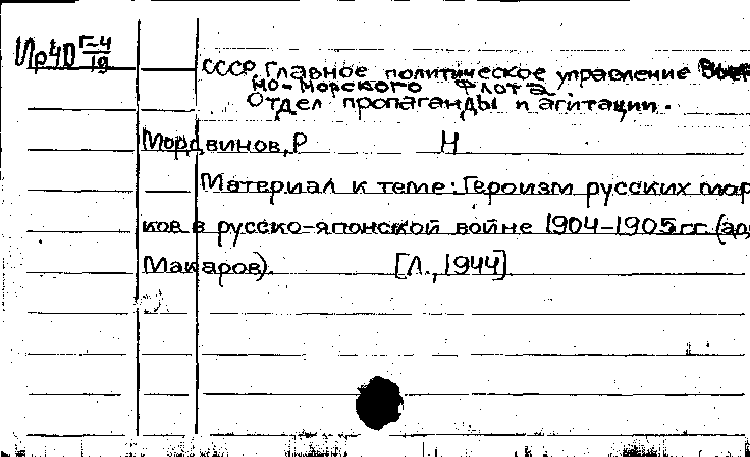 Ир40 Г-4/19
СССР. Главное политическое управление Воен
но-морского Флота
Отдел пропаганды и агитации.
Мордвинов, Р Н
Материал к теме: Героизм русских мор
ков в русско-японской войне 1904-1905 гг. (ад
Макаров). [Л., 1944]